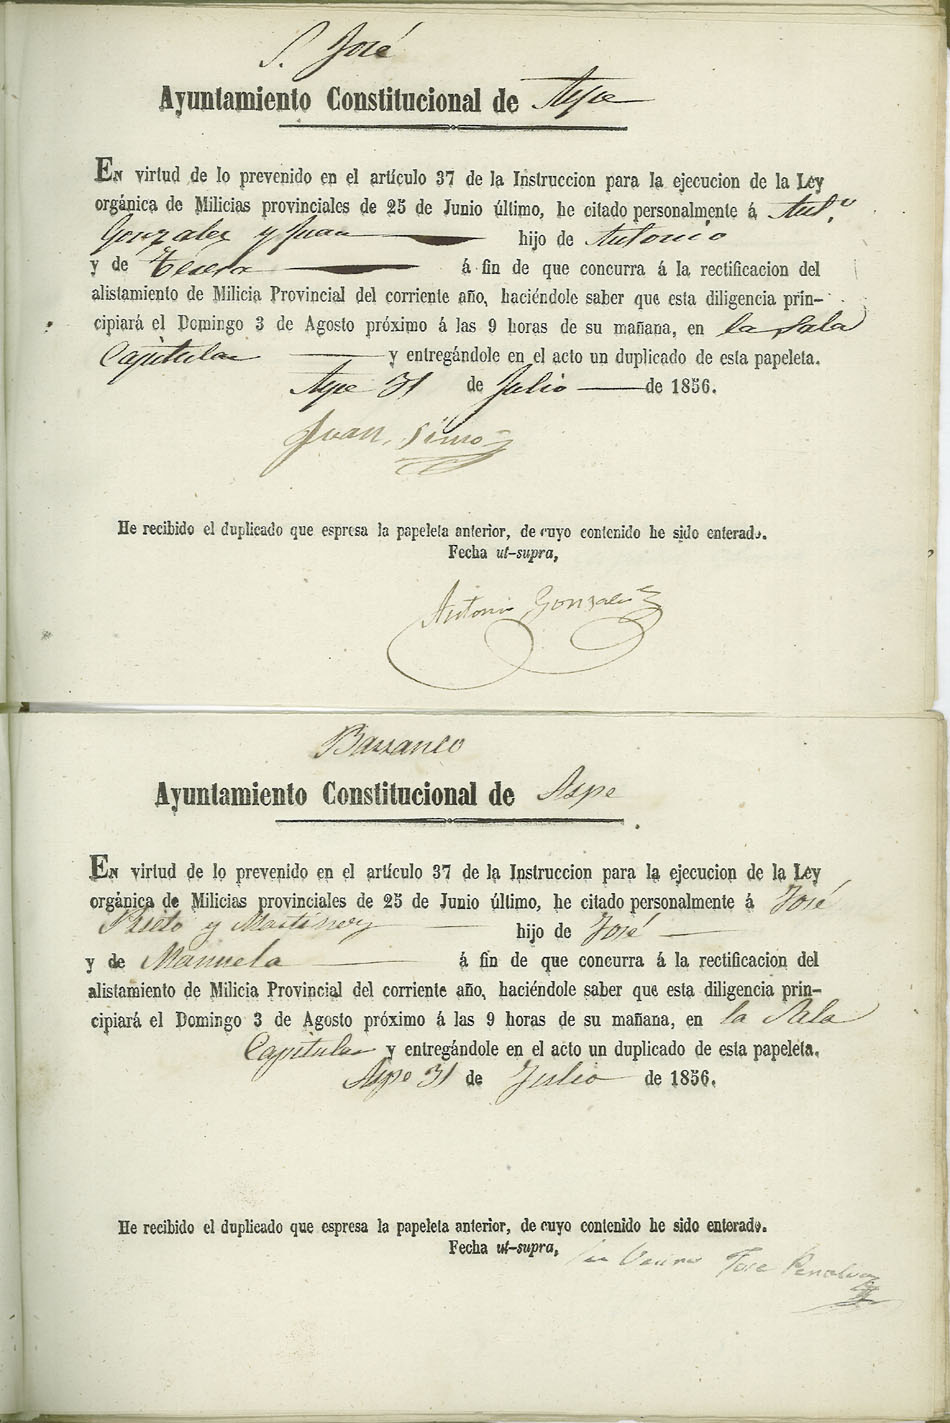 S. José
Ayuntamiento Constitucional de Aspe
EN virtud de lo prevenido en el artículo 37 de la Instruccion para la ejecucion de la Ley
orgánica de Milicias provinciales de 25 de Junio último, he citado personalmente á Ant.º
Gonzalez y Juan hijo de Antonio
y de Teresa á fin de que concurra á la rectificacion del
alistamiento de Milicia Provincial del corriente año, haciéndole saber que esta diligencia prin-
cipiará el Domingo 3 de Agosto próximo á las 9 horas de su mañana, en la Sala
Capitular y entregándole en el acto un duplicado de esta papeleta.
Aspe 31 de Julio de 1856.
Juan
He recibido el duplicado que espresa la papeleta anterior, de cuyo contenido he sido enterado.
Fecha ut-supra,
Antonio Gonzalez
Barranco
Ayuntamiento Constitucional de Aspe
EN virtud de lo prevenido en el artículo 37 de la Instruccion para la ejecucion de la Ley
orgánica de Milicias provinciales de 25 de Junio último, he citado personalmente á José
Prieto y Martinez hijo de José
y de Manuela á fin de que concurra á la rectificacion del
alistamiento de Milicia Provincial del corriente año, haciéndole saber que esta diligencia prin-
cipiará el Domingo 3 de Agosto próximo á las 9 horas de su mañana, en la Sala
Capitular y entregándole en el acto un duplicado de esta papeleta.
Aspe 31 de Julio de 1856.
He recibido el duplicado que espresa la papeleta anterior, de cuyo contenido he sido enterado.
Fecha ut-supra,
Jose